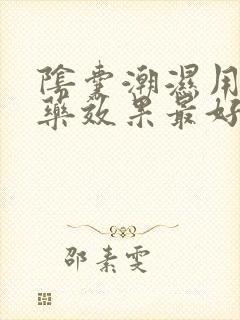 陰囊潮濕用
藥效果最好
邵素雯